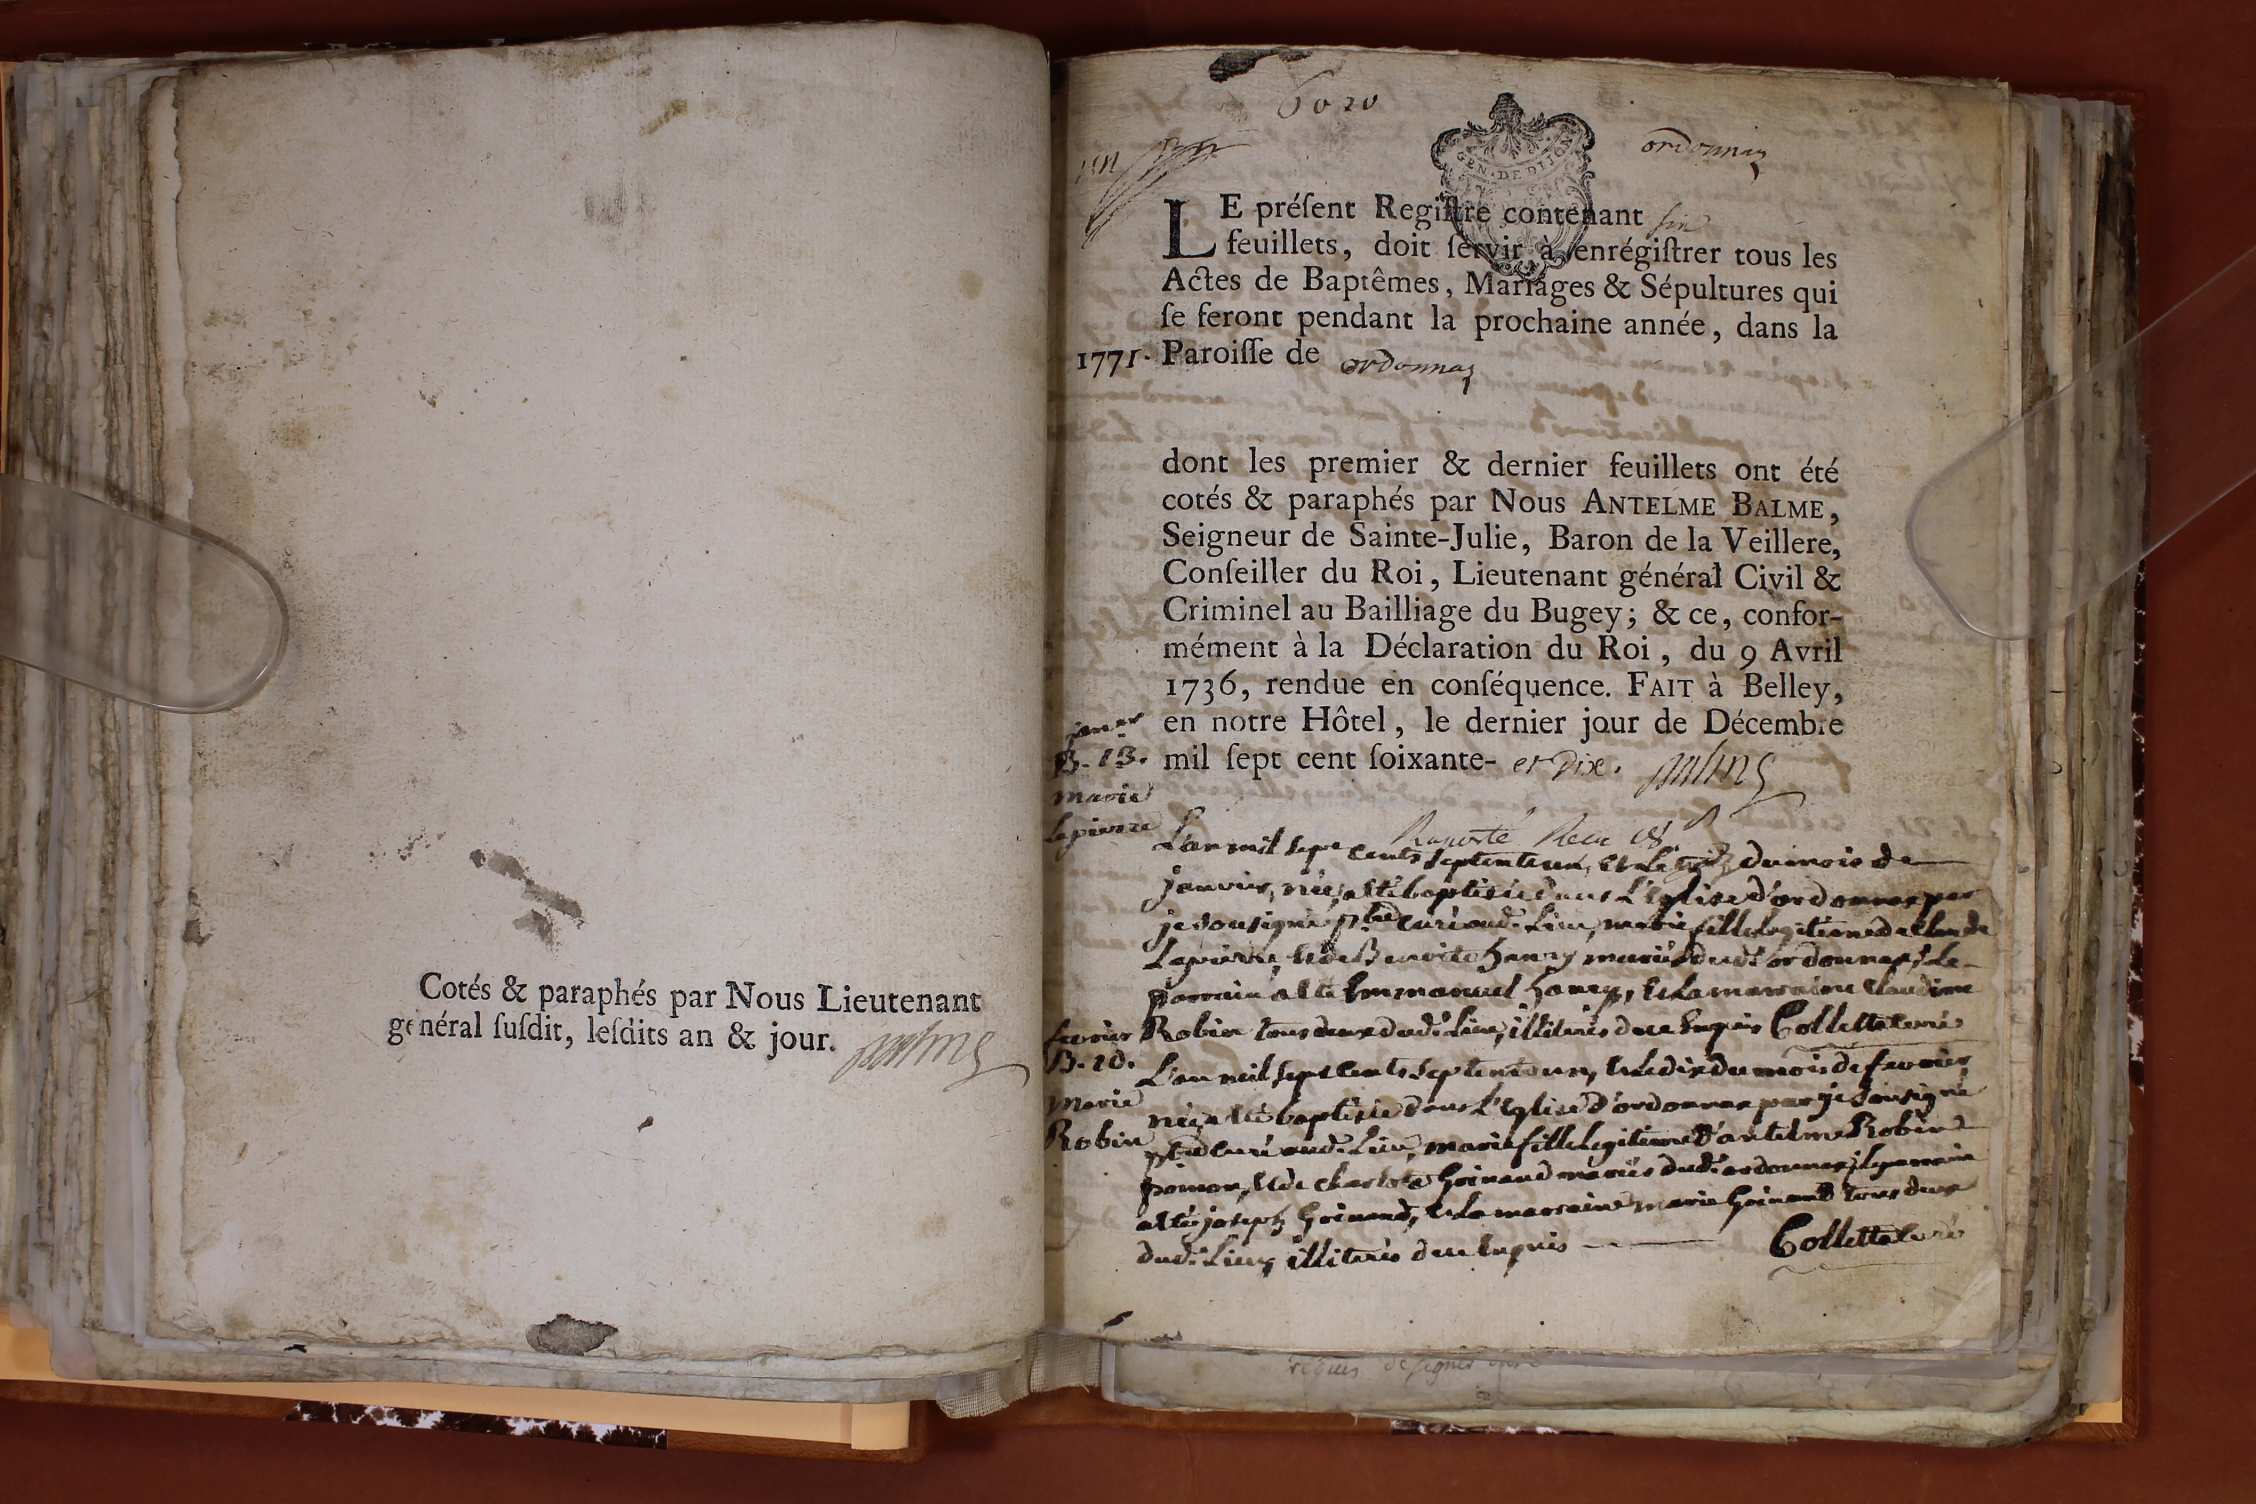 Cotés & paraphés par Nous Lieutenant
général ſuſdit, leſdits an & jour.
6020
un
ordonnaz
GEN. DE DIJON
LE préſent Regiſtre contenant six
feuillets, doit ſervir à enrégiſtrer tous les
Actes de Baptêmes, Mariages & Sépultures qui
ſe feront pendant la prochaine année, dans la
1771. Paroiſſe de ordonnaz
dont les premier & dernier feuillets ont été
cotés & paraphés par Nous ANTELME BALME,
Seigneur de Sainte-Julie, Baron de la Veillere,
Conſeiller du Roi, Lieutenant général Civil &
Criminel au Bailliage du Bugey; & ce, confor-
mément à la Déclaration du Roi, du 9 Avril
1736, rendue en conſéquence. FAIT à Belley,
en notre Hôtel, le dernier jour de Décembre
mil ſept cent ſoixante- et Dix.
janer
B. 13.
marie
Lapierre
L'an mil sept cents septenteun, et le treize du mois de
janvier, née, a eté baptisée dans L'Eglise d'ordonnaz par
je sousigné ptre curé aud. Lieu, marie fille legitime de Claude
Lapierre, et de Benoite hanry mariés dud. ordonnaz, Le
parrain a eté Emmanuel hanry, et La marraine Claudine
Robin tous deux dud. Lieu, illiterés de ce Enquis Collet curé
fevrier
B. 10.
Marie
Robin
L'an mil sept cents septenteun, et le dix du mois de fevrier,
née, a eté baptisée dans L'Eglise d'ordonnaz par je sousigné
ptre curé aud. Lieu, marie fille legitime d'antelme Robin
pomon, et de charlote Goinaud mariés dud. ordonnaz, le parrain
a eté joseph Goinaud, et La marraine marie Goinaud tous deux
dud. Lieu, illiterés de ce Enquis Collet curé
requis de signer